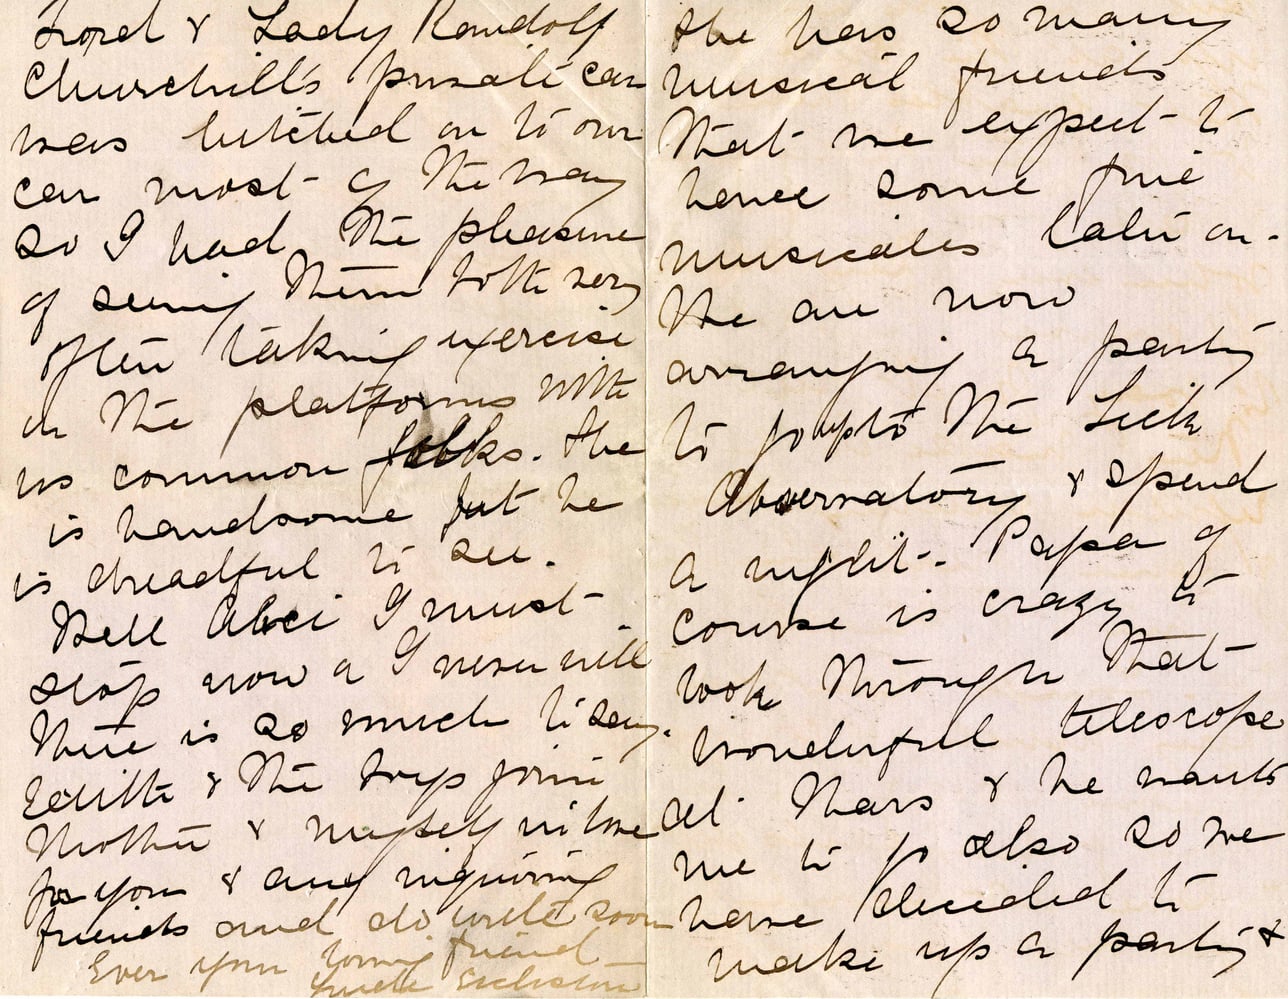 Lord & Lady Randolf
Churchill's private car
was hitched on to our
car most of the way
so I had the pleasure
of seeing them both very
often taking exercise
on the platforms with
us common folks. She
is handsome but he
is dreadful to see.
Well I must
stop now or I never will
there is so much to say.
Edith & the boys join
Mother & myself in love
for you & any inquiring
friends and do write soon
Ever your loving friend
she has so many
musical friends
that we expect to
have some fine
musicales later on.
We are now
arranging a party
to go up to the Lick
Observatory & spend
a night. Papa of
course is crazy to
look through that
wonderful telescope
at Mars & he wants
me to go also so we
have decided to
make up a party &